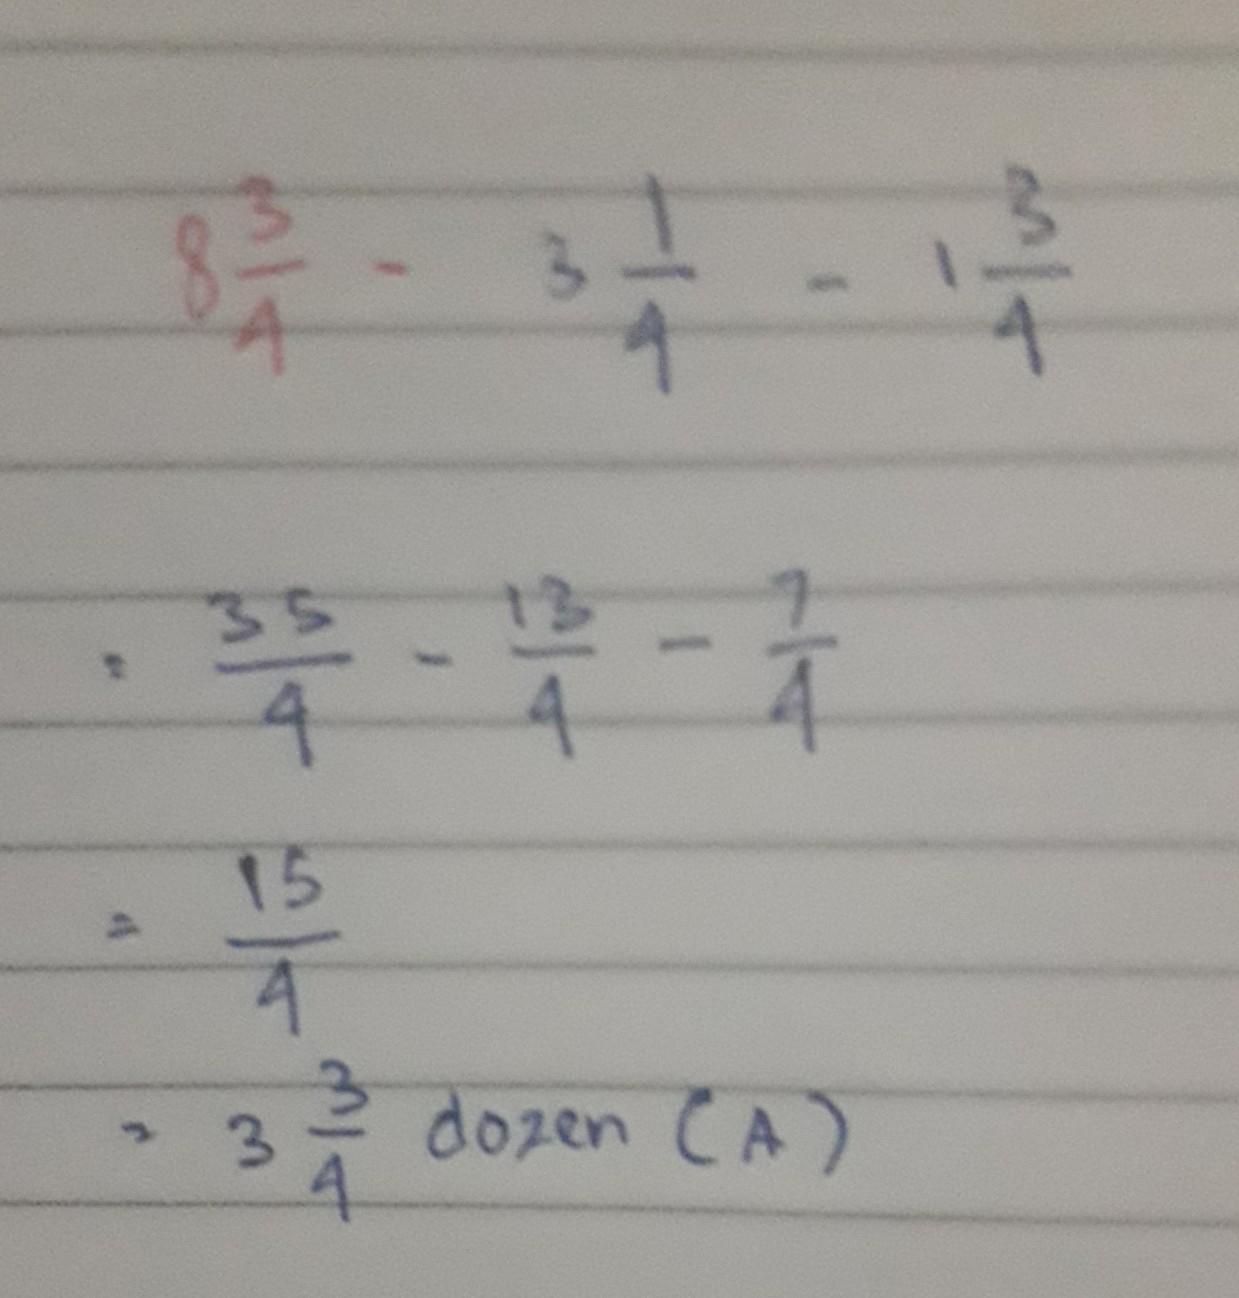 8 3/4 - 3 1/4 - 1 3/4
= 35/4 - 13/4 - 7/4
= 15/4
= 3 3/4 dozen (A)